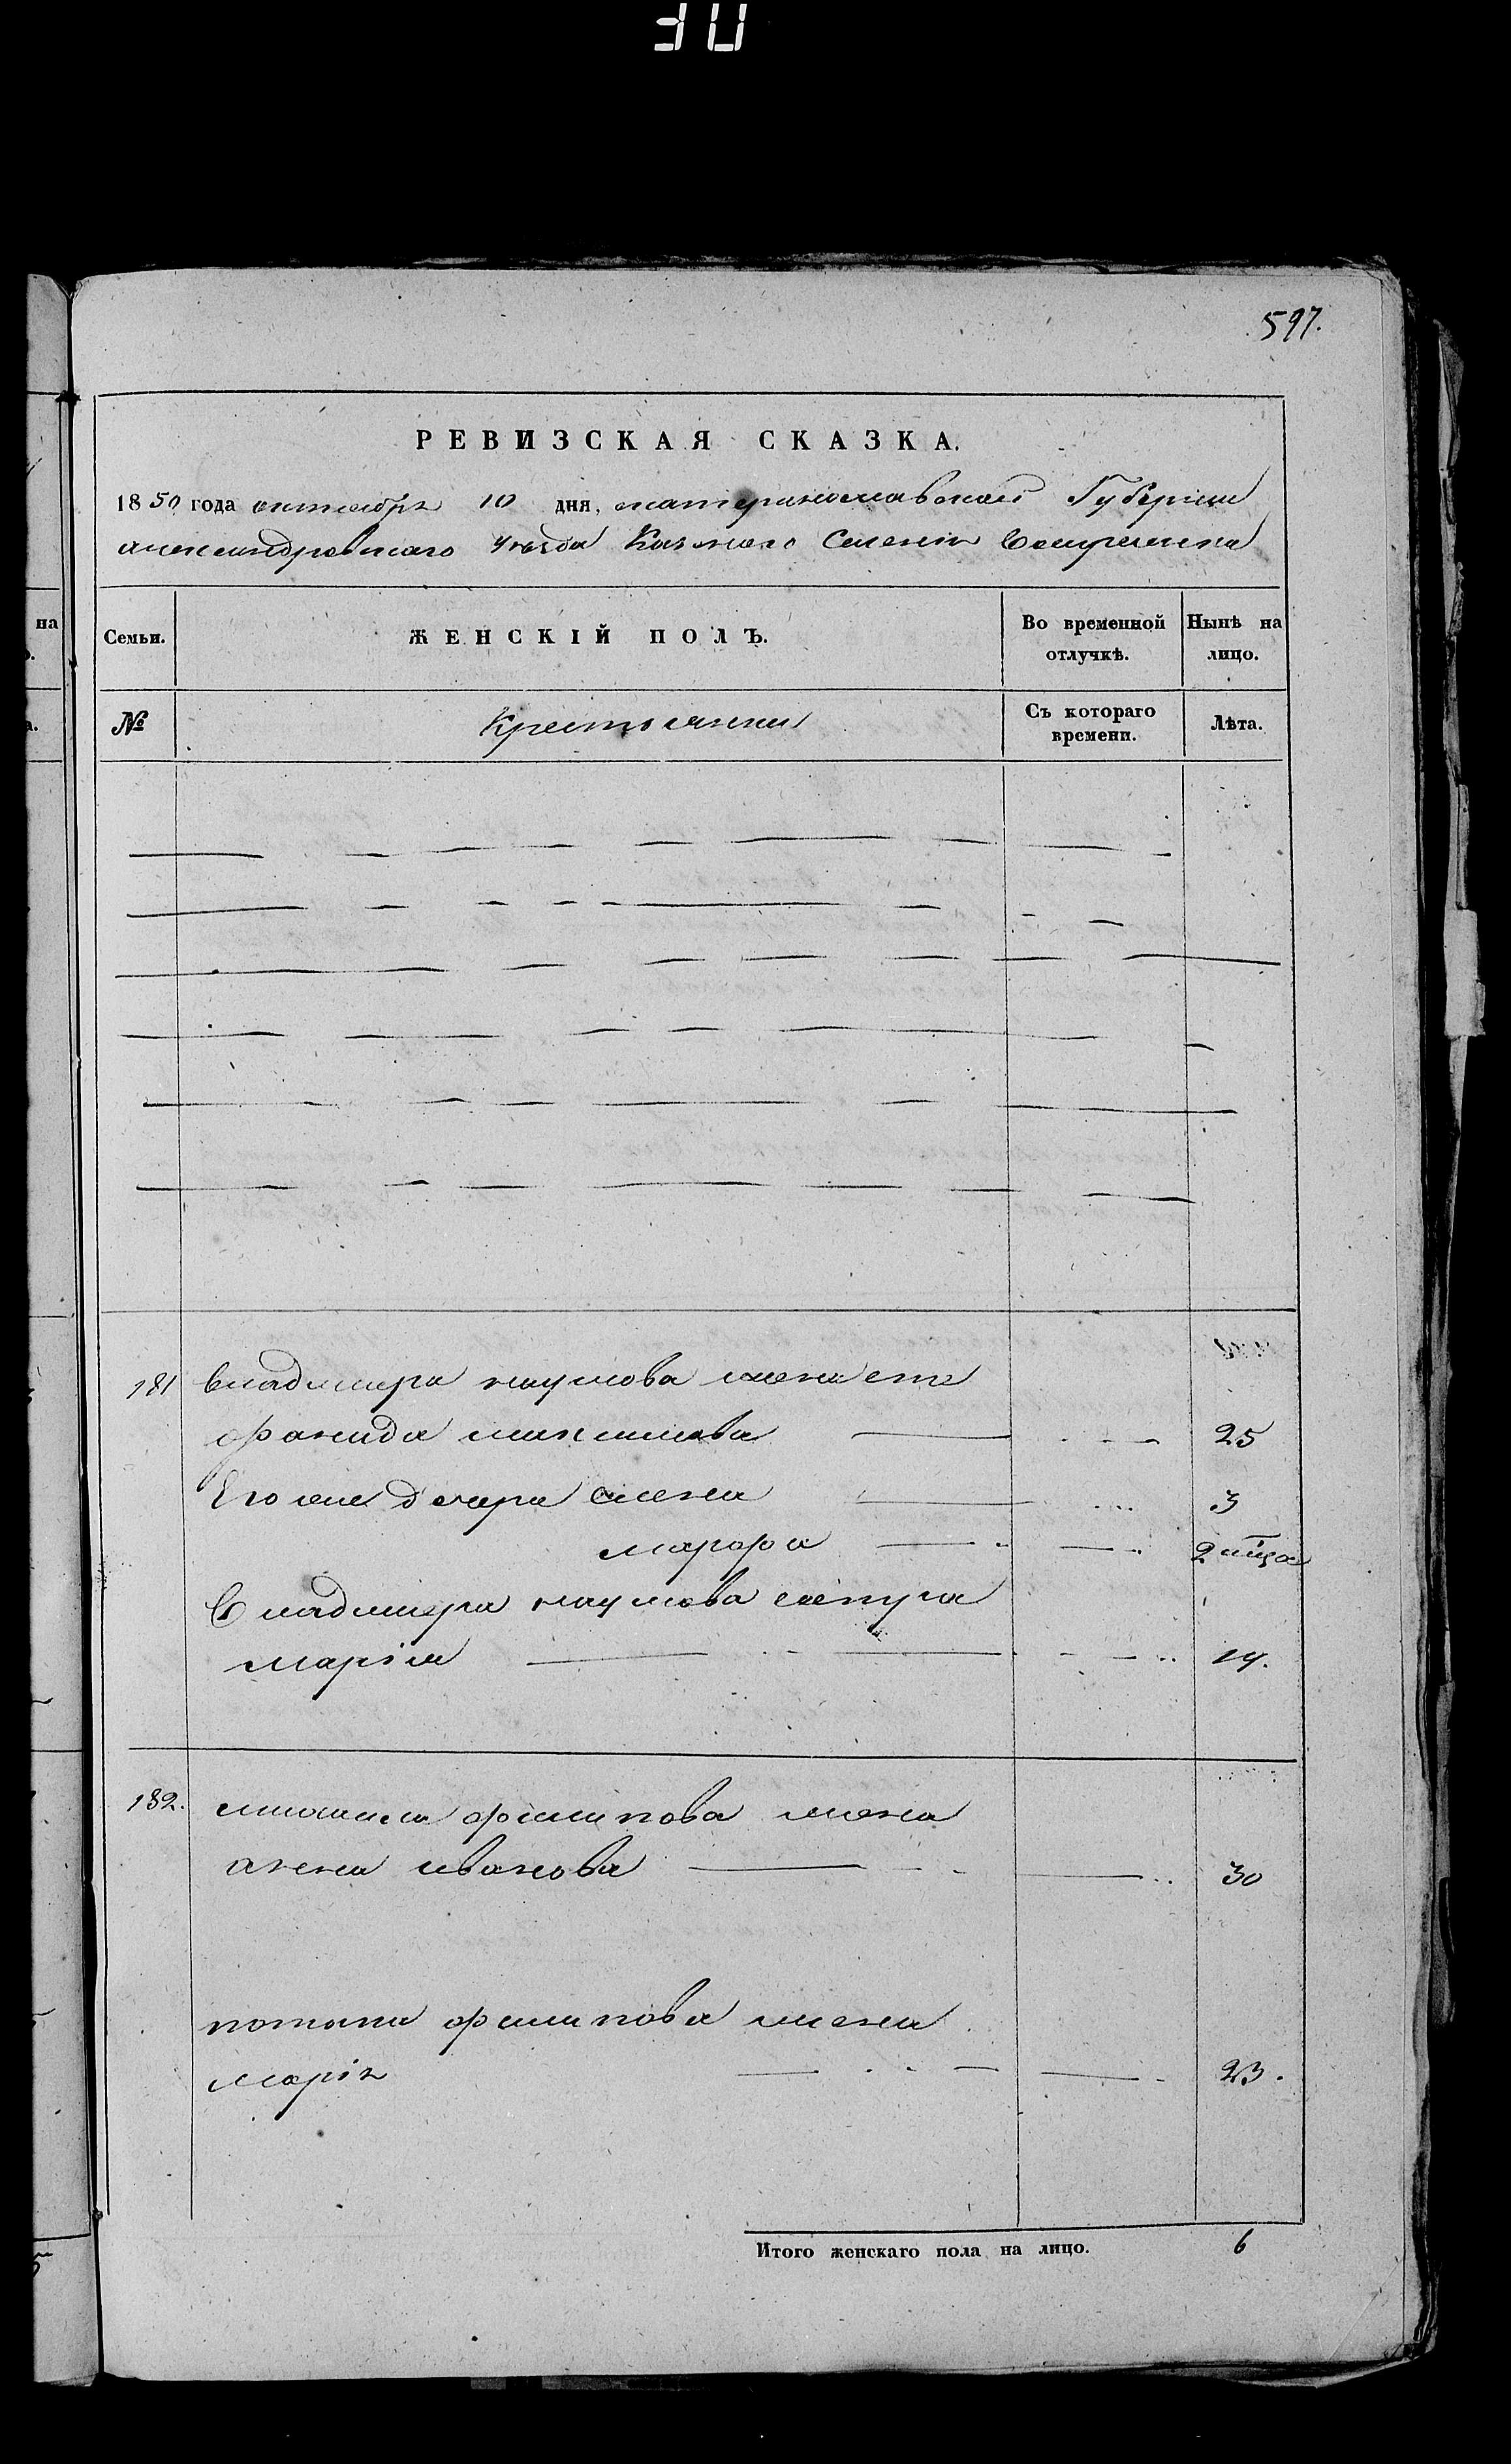 30
597.
РЕВИЗСКАЯ СКАЗКА.
1850 года октября 10 дня, екатеринославской Губернии
александровскаго уѣзда Казенаго Селения
на
Семьи.
ЖЕНСКІЙ ПОЛЪ.
Во временной отлучкѣ.
Нынѣ на лицо.
№
Крестьянки
Съ котораго времени.
Лѣта.
181 владимера наумова жена
мaксимова 25
Его же дочери елена 3
марфа 2
владимера наумова сестра
марія 14.
182. михаила филипова жена
анна иванова 30
потапа филипова жена
марія 23.
Итого женскаго пола на лицо. 6